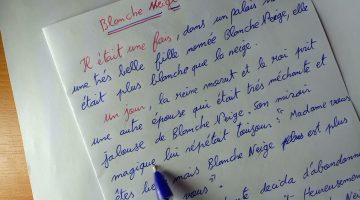 Blanche Neige
Il était une fois, dans un palais
une très belle fille nomée Blanche Neige, elle
était plus blanche que la neige.
Un jour, la reine mourut et le roi prit
une autre épouse qui était très méchante et
jalouse de Blanche Neige. Son miroir
magique lui répétait toujours : " Madame vous
êtes mais Blanche Neige est plus
vous "
decida d'abandonn
Heureusem